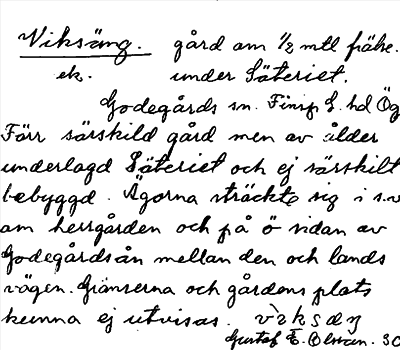 Viksäng. gård om 1/2 mtl frälse.
ek. under Säteriet.
Godegårds sn. Finsp L. hd Ög
Förr särskild gård men av ålder
underlagd Säteriet och ej särskilt
bebyggd. Ägorna sträckte sig i s.v
om herrgården och på ö sidan av
Godegårdsån mellan den och lands
vägen. Gränserna och gårdens plats
kunna ej utvisas.
Gustaf E. Olsson. 30